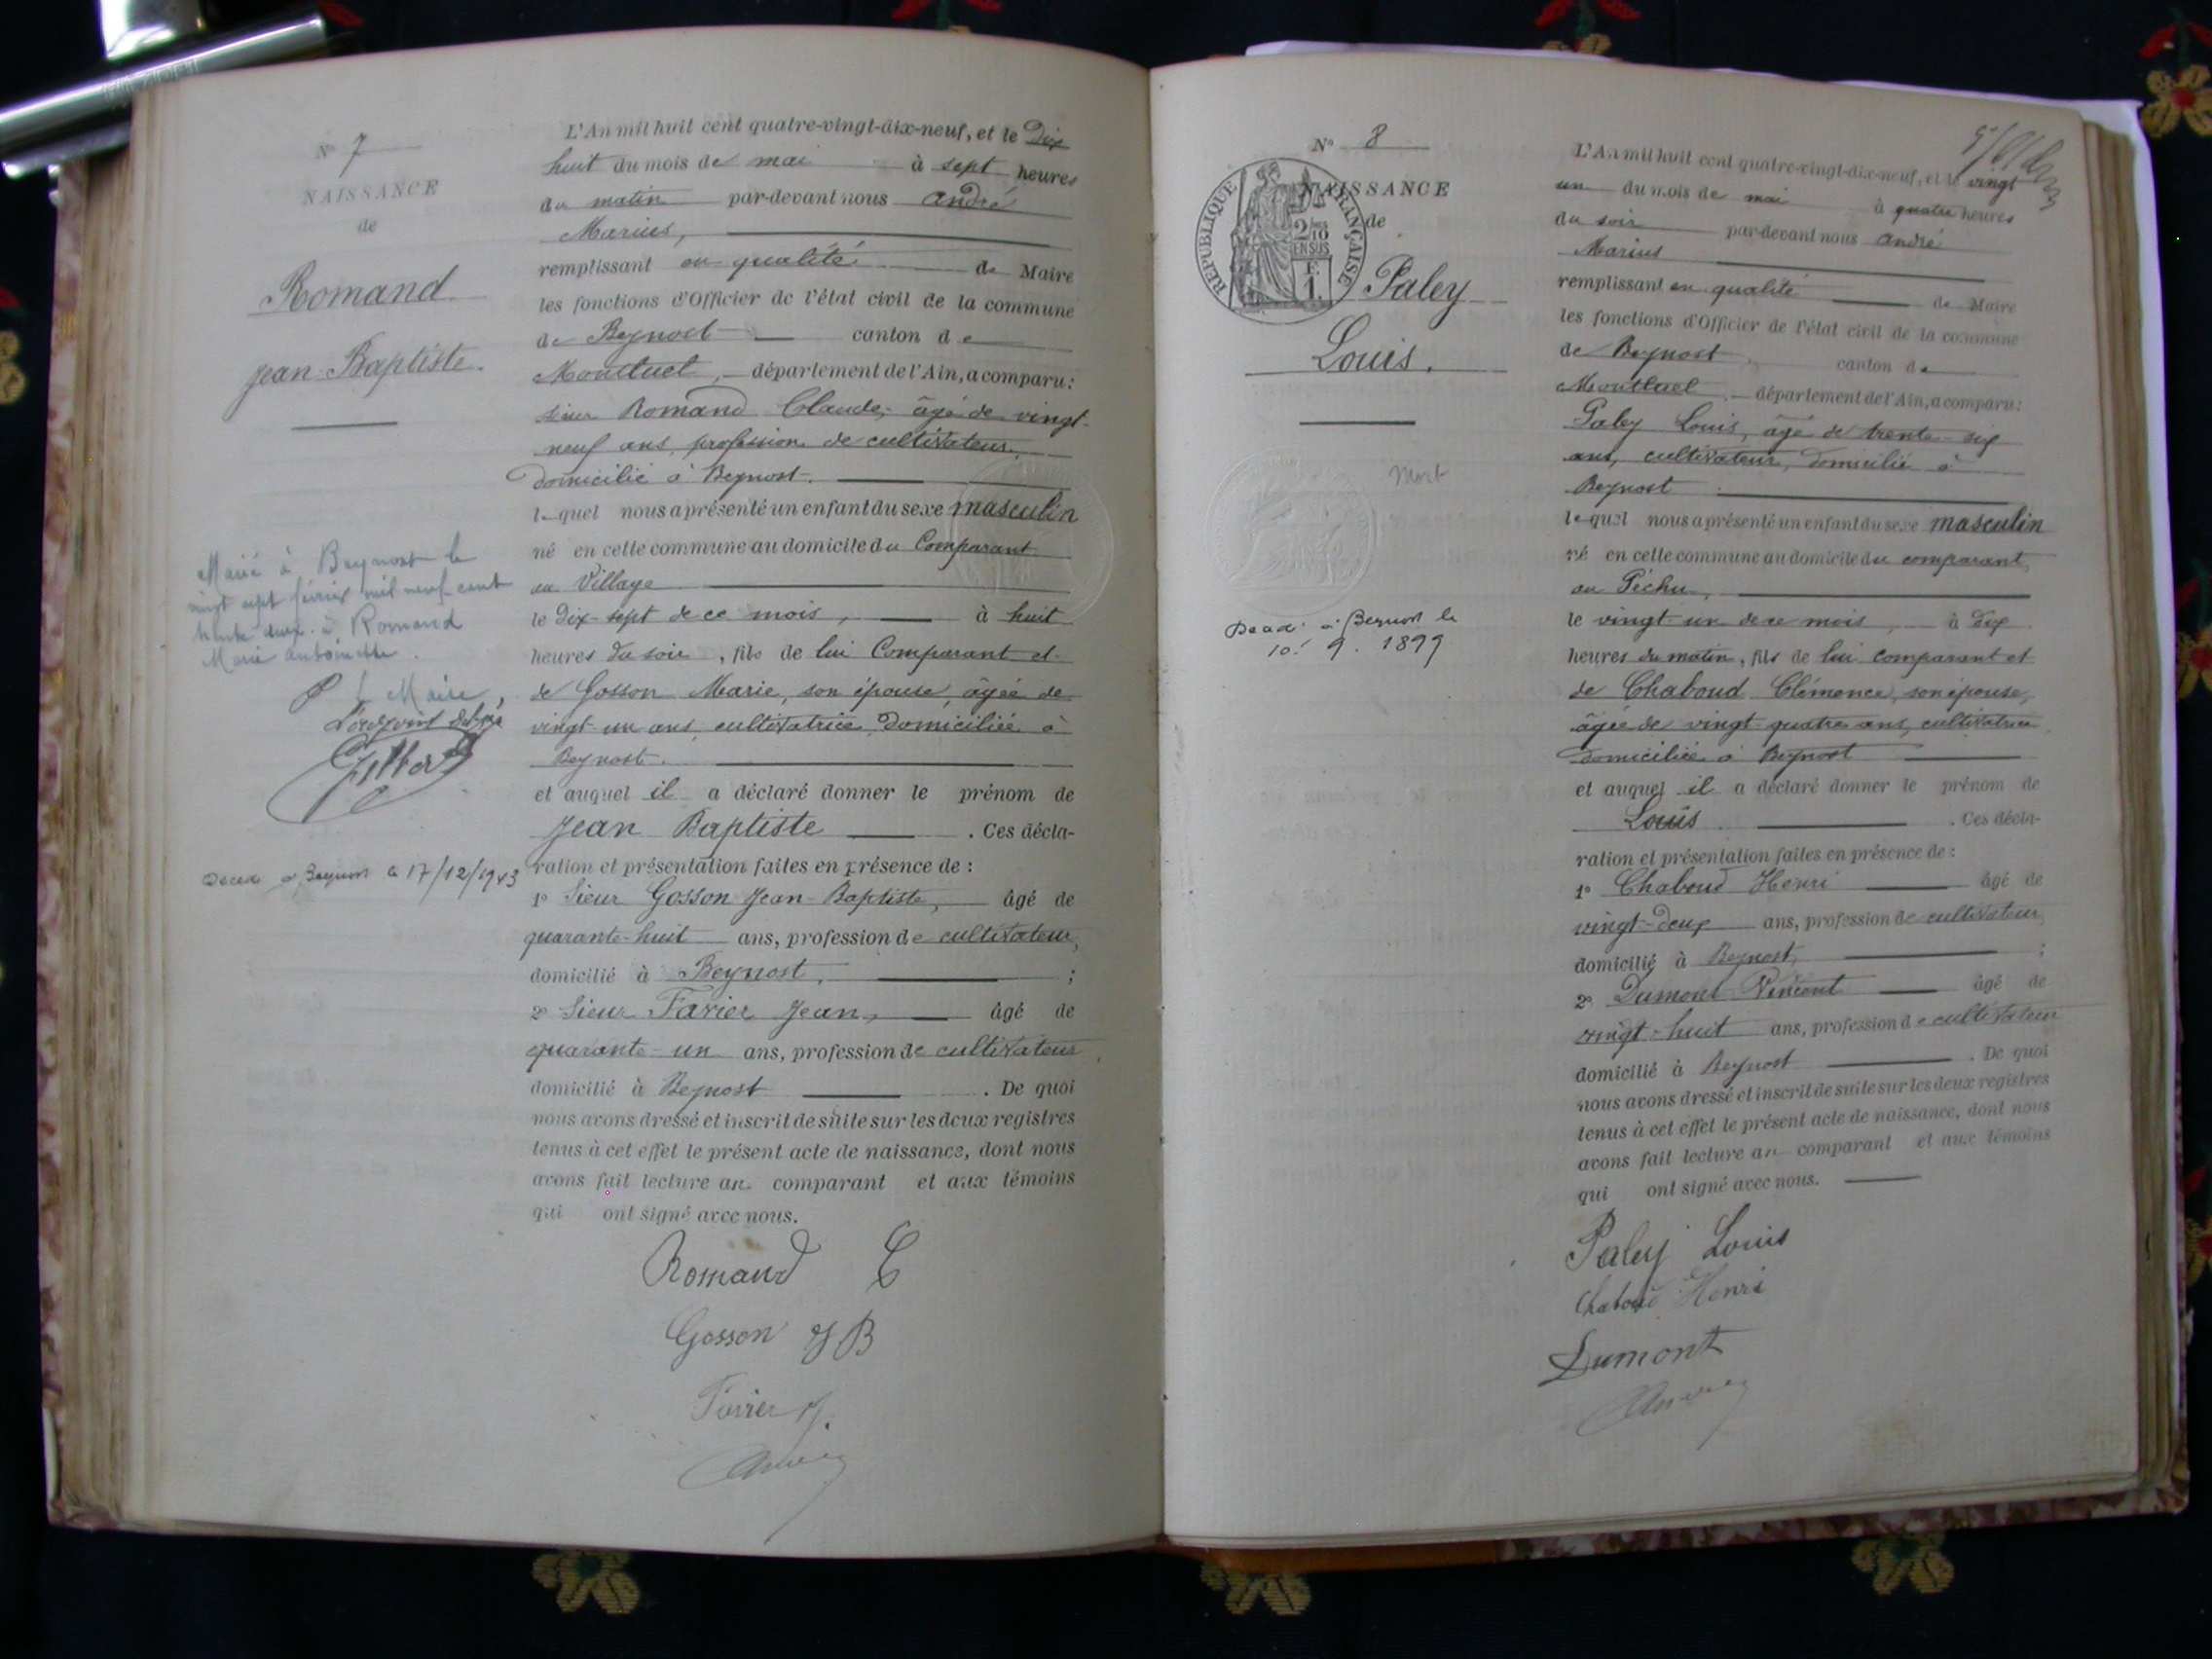 N° 7
NAISSANCE
de
Romand
Jean-Baptiste.
Marié à Beynost le
vingt sept février mil neuf cent
trente deux à Romand
Marie Antoinette.
P. le Maire,
L'adjoint délégué
Décédé à Beynost le 17/12/1943
L'An mil huit cent quatre-vingt-dix-neuf, et le Dix
huit du mois de mai à sept heures
du matin par-devant nous André
Marius,
remplissant en qualité de Maire
les fonctions d'Officier de l'état civil de la commune
de Beynost canton de
Montluel, département de l'Ain, a comparu:
sieur Romand Claude, âgé de vingt-
neuf ans, profession de cultivateur,
domicilié à Beynost.
lequel nous a présenté un enfant du sexe masculin
né en cette commune au domicile du Comparant
au Village
le dix-sept de ce mois, à huit
heures du soir, fils de lui Comparant et
de Gosson Marie, son épouse, âgée de
vingt-un ans, cultivatrice, domiciliée à
Beynost.
et auquel il a déclaré donner le prénom de
Jean Baptiste. Ces décla-
ration et présentation faites en présence de :
1° Sieur Gosson Jean-Baptiste, âgé de
quarante-huit ans, profession de cultivateur,
domicilié à Beynost, ;
2° Sieur Favier Jean, âgé de
quarante-un ans, profession de cultivateur,
domicilié à Beynost. De quoi
nous avons dressé et inscrit de suite sur les deux registres
tenus à cet effet le présent acte de naissance, dont nous
avons fait lecture au comparant et aux témoins
qui ont signé avec nous.
Romand C
Gosson J B
Favier J.
N° 8
NAISSANCE
de
RÉPUBLIQUE FRANÇAISE
2/10
EN SUS
F.
1.
Paley
Louis.
Mort
Décédé à Beynost le
10. 9. 1899
L'An mil huit cent quatre-vingt-dix-neuf, et le vingt
un du mois de mai à quatre heures
du soir par-devant nous André
Marius
remplissant en qualité de Maire
les fonctions d'Officier de l'état civil de la commune
de Beynost canton de
Montluel, département de l'Ain, a comparu:
Paley Louis, âgé de trente-six
ans, cultivateur, domicilié à
Beynost.
lequel nous a présenté un enfant du sexe masculin
né en cette commune au domicile du comparant,
au Péchu,
le vingt-un de ce mois, à dix
heures du matin, fils de lui comparant et
de Chaboud Clémence, son épouse,
âgée de vingt-quatre ans, cultivatrice
domiciliée à Beynost
et auquel il a déclaré donner le prénom de
Louis. Ces décla-
ration et présentation faites en présence de :
1° Chaboud Henri âgé de
vingt-deux ans, profession de cultivateur,
domicilié à Beynost, ;
2° Dumont Vincent âgé de
vingt-huit ans, profession de cultivateur
domicilié à Beynost. De quoi
nous avons dressé et inscrit de suite sur les deux registres
tenus à cet effet le présent acte de naissance, dont nous
avons fait lecture au comparant et aux témoins
qui ont signé avec nous.
Paley Louis
Chaboud Henri
Dumont